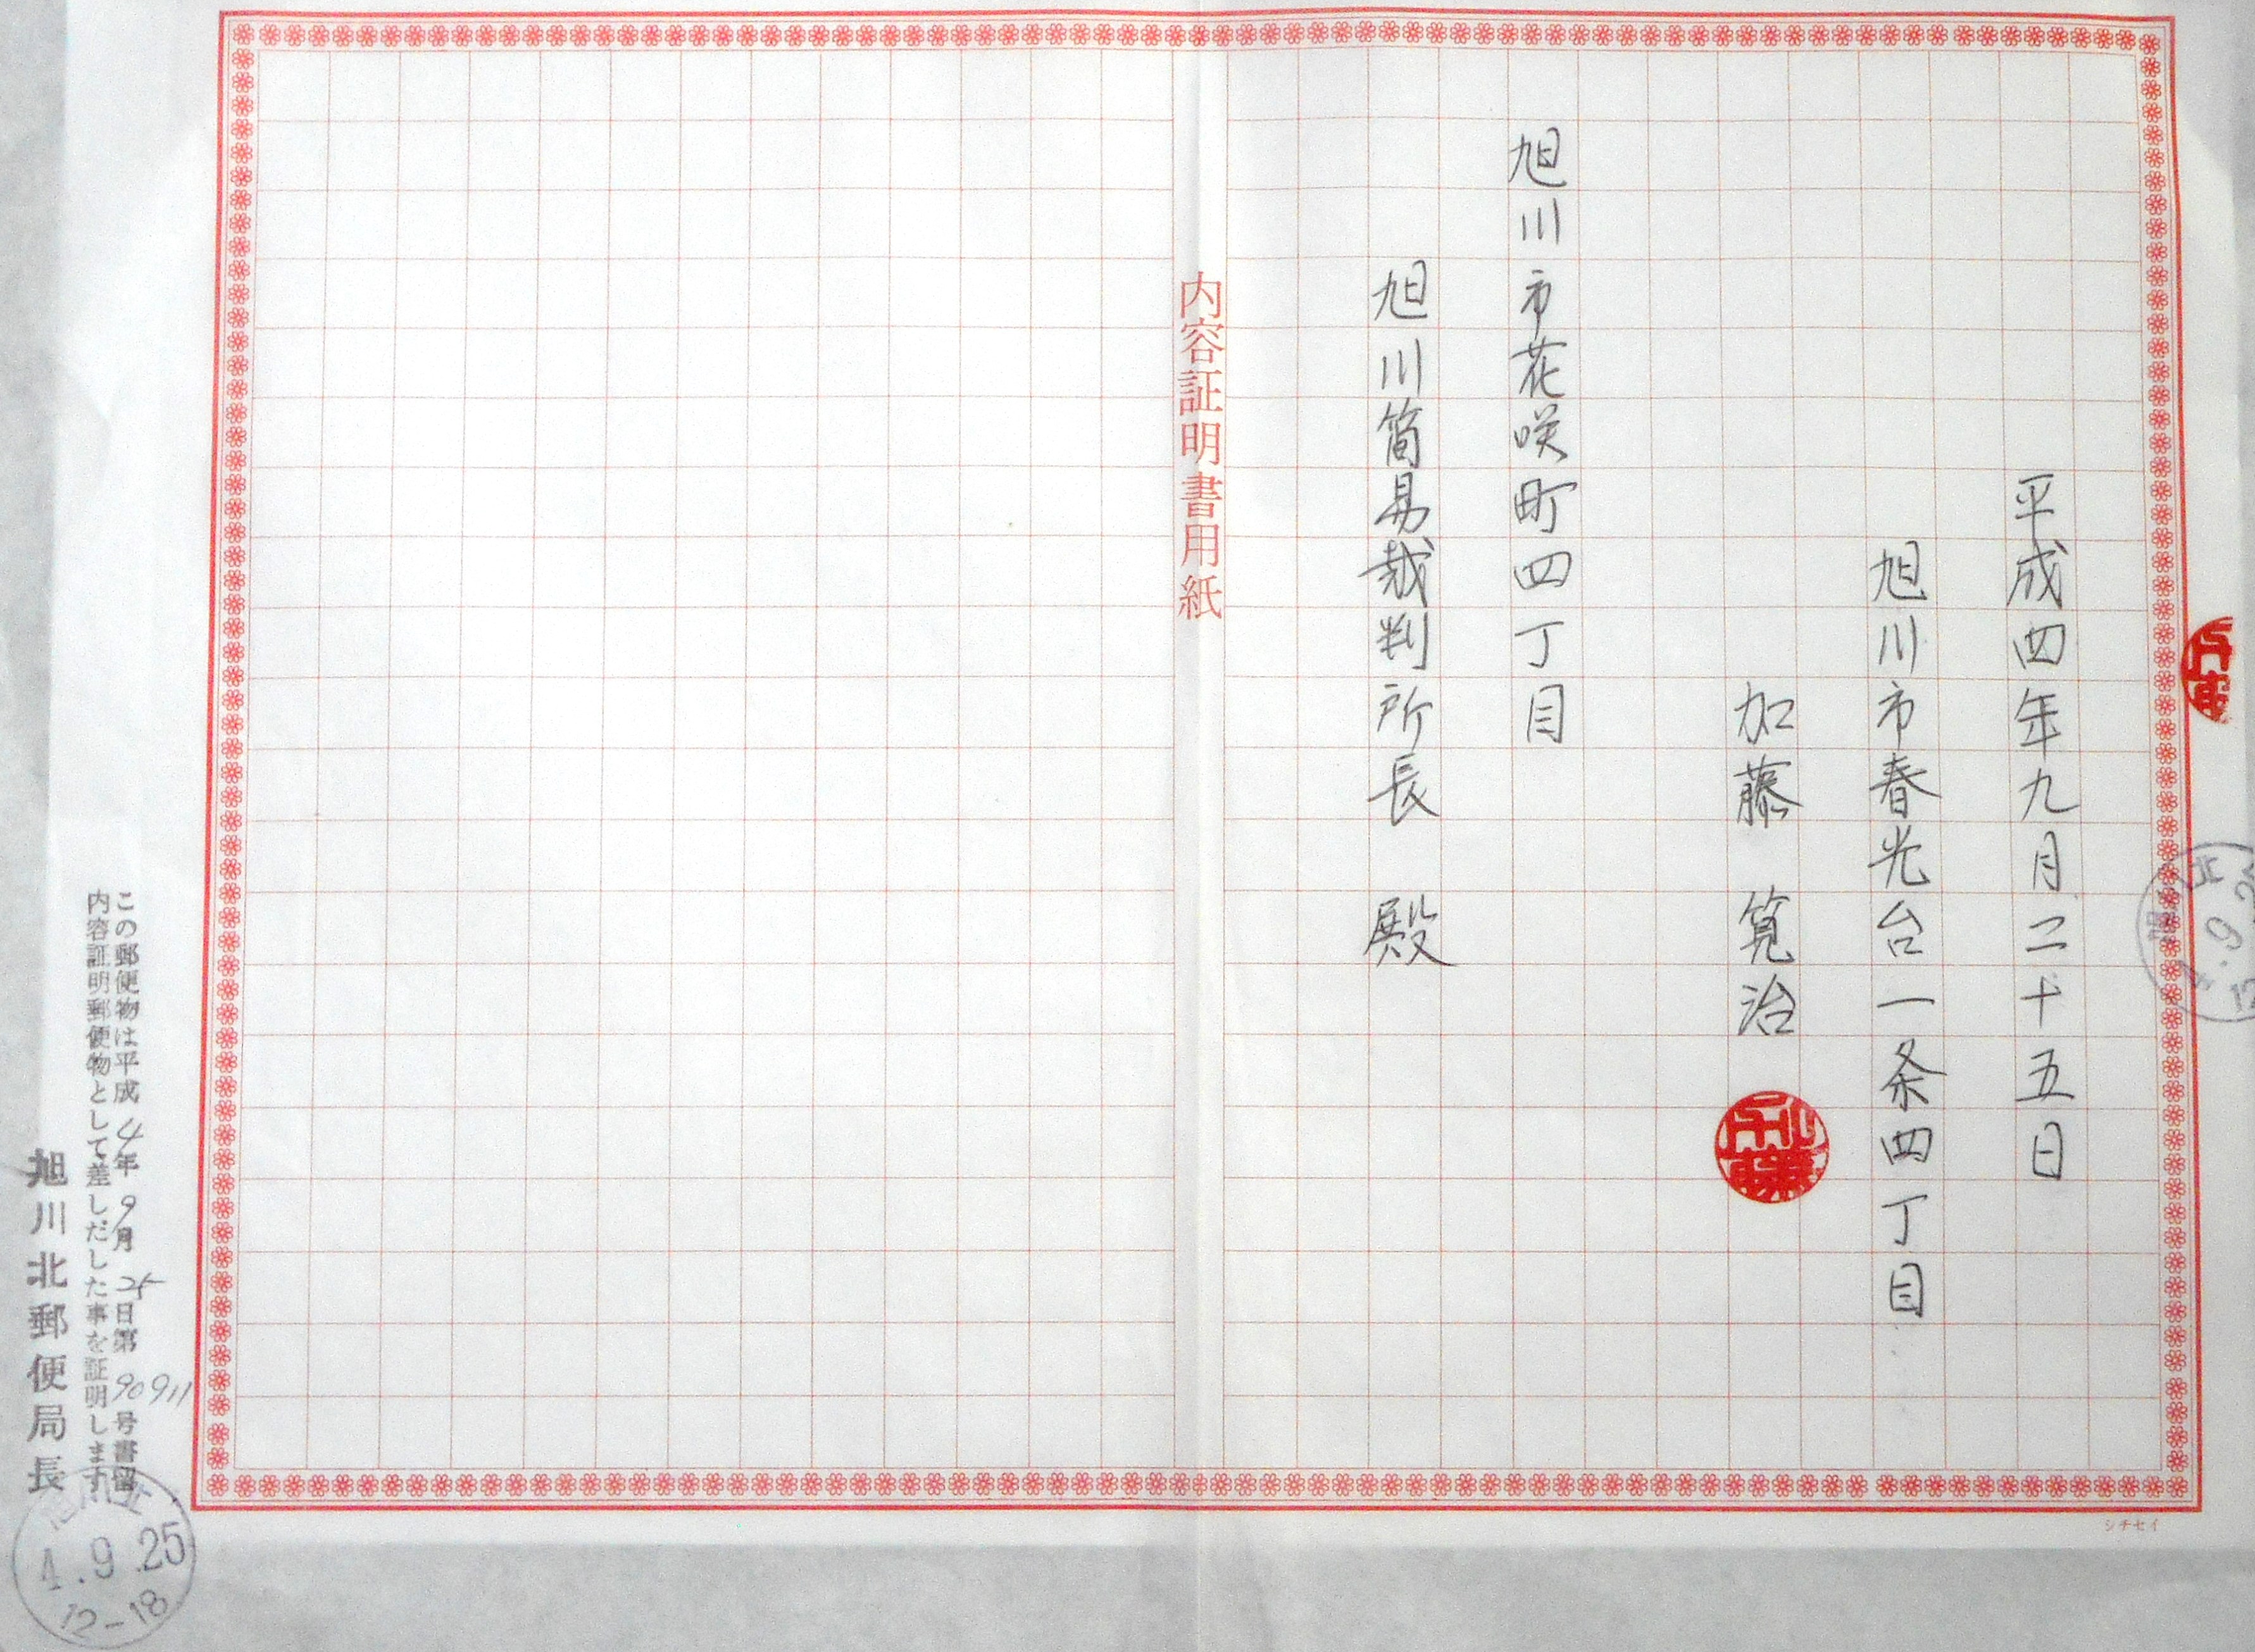 平成四年九月二十五日
旭川市春光台一条四丁目
加藤 筧治
旭川市花咲町四丁目
旭川簡易裁判所長 殿
内容証明書用紙
この郵便物は平成4年9月25日第90911号書留
内容証明郵便物として差しだした事を証明します
旭川北郵便局長
4.9.25
12-18
シチセイ